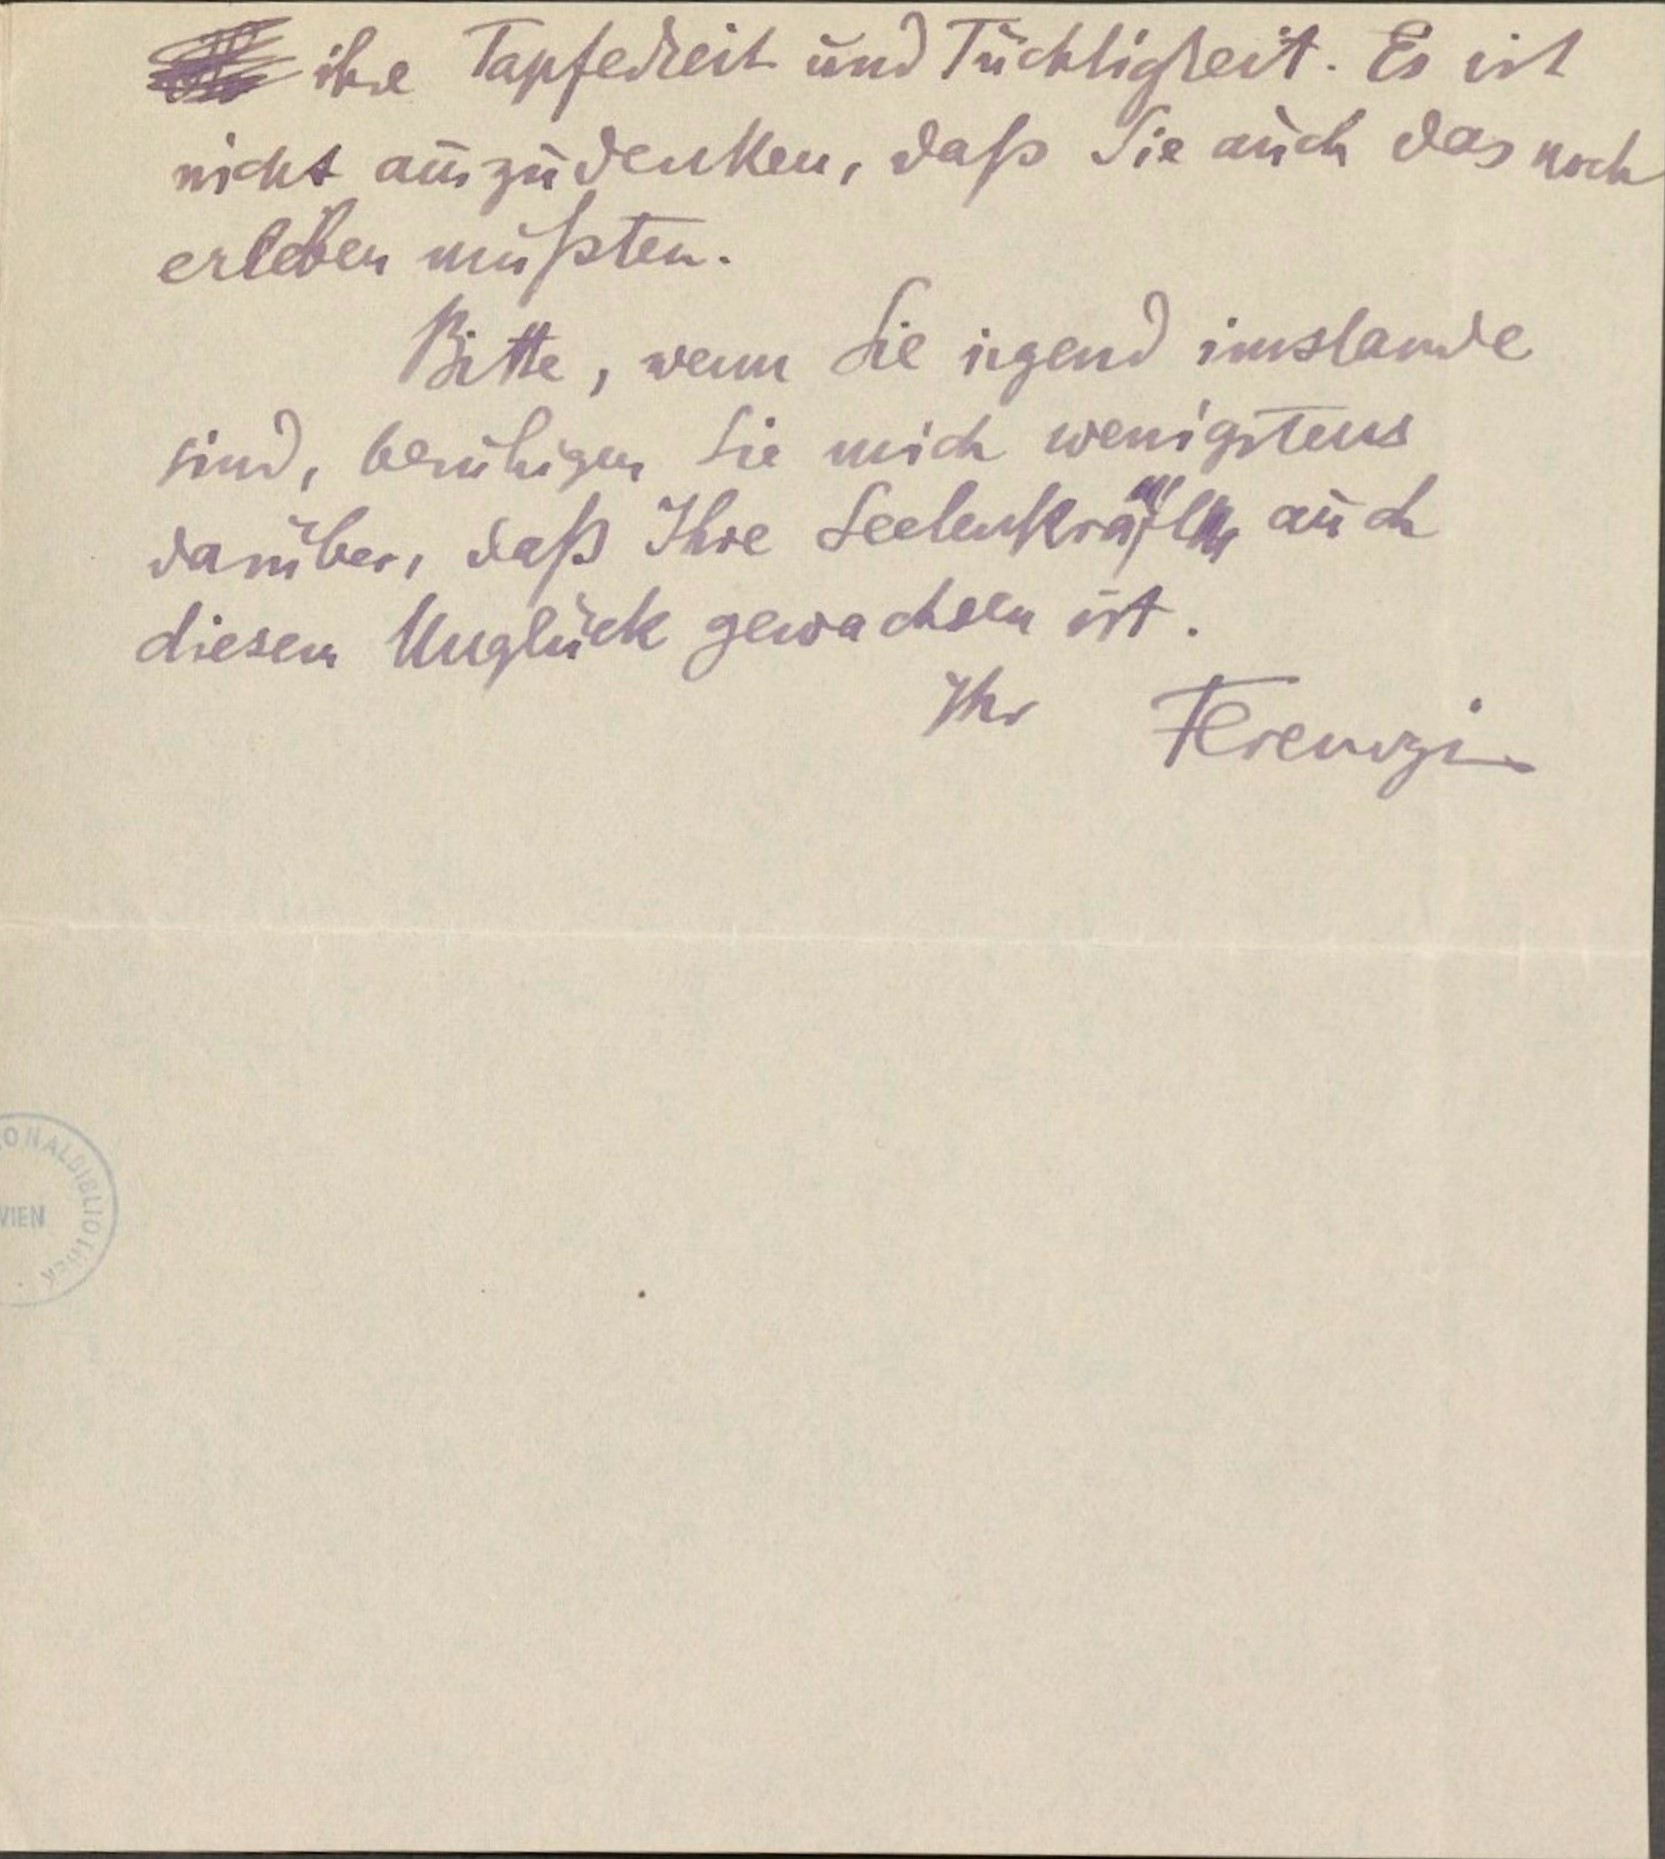 ihre Tapferkeit und Tüchtigkeit. Es ist
nicht auszudenken, daß Sie auch das noch
erleben müßten.
Bitte, wenn Sie irgend imstande
sind, beruhigen Sie mich wenigstens
darüber, daß Ihre Seelenkraft auch
diesem Unglück gewachsen ist.
Ihr Ferenczi
ONALBIBLIOTHEK
WIEN